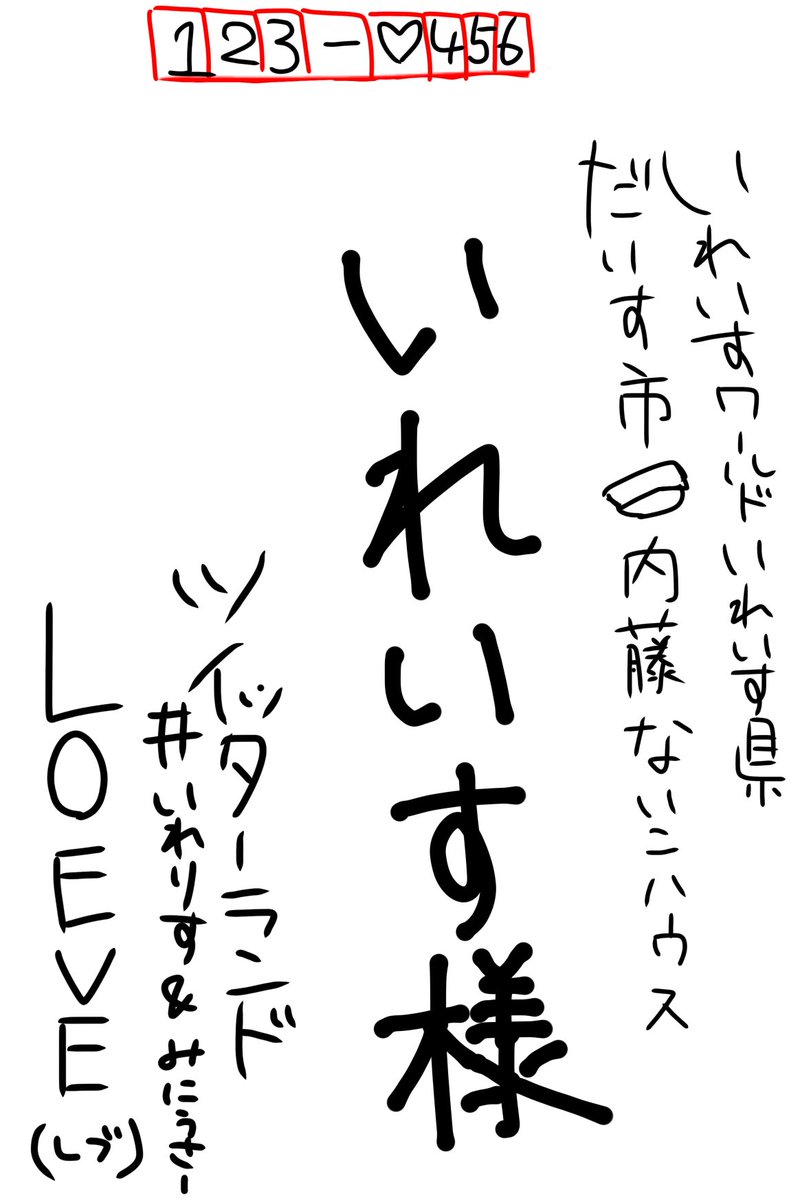 123-♡456
いれいすワールドいれいす県
だいす市内藤ないこハウス
いれいす様
ツイッターランド
#いれりす&みにうさー
LOEVE
(レブ)